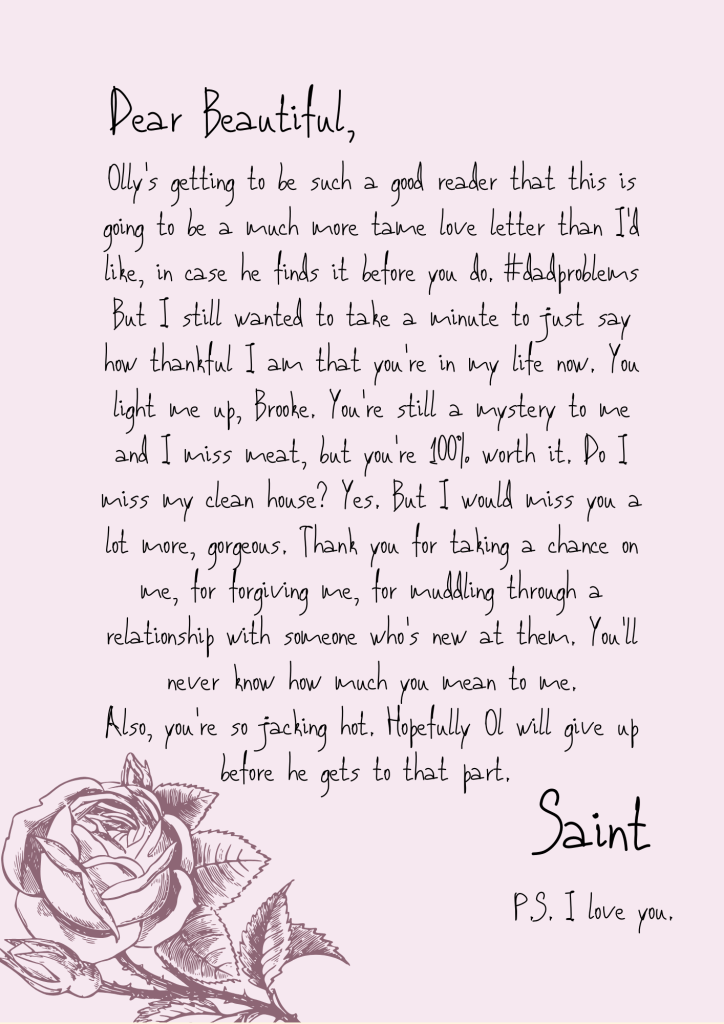 Dear Beautiful,
Olly's getting to be such a good reader that this is
going to be a much more tame love letter than I'd
like, in case he finds it before you do. #dadproblems
But I still wanted to take a minute to just say
how thankful I am that you're in my life now. You
light me up, Brooke. You're still a mystery to me
and I miss meat, but you're 100% worth it. Do I
miss my clean house? Yes. But I would miss you a
lot more, gorgeous. Thank you for taking a chance on
me, for forgiving me, for muddling through a
relationship with someone who's new at them. You'll
never know how much you mean to me.
Also, you're so jacking hot. Hopefully Ol will give up
before he gets to that part.
Saint
P.S. I love you.